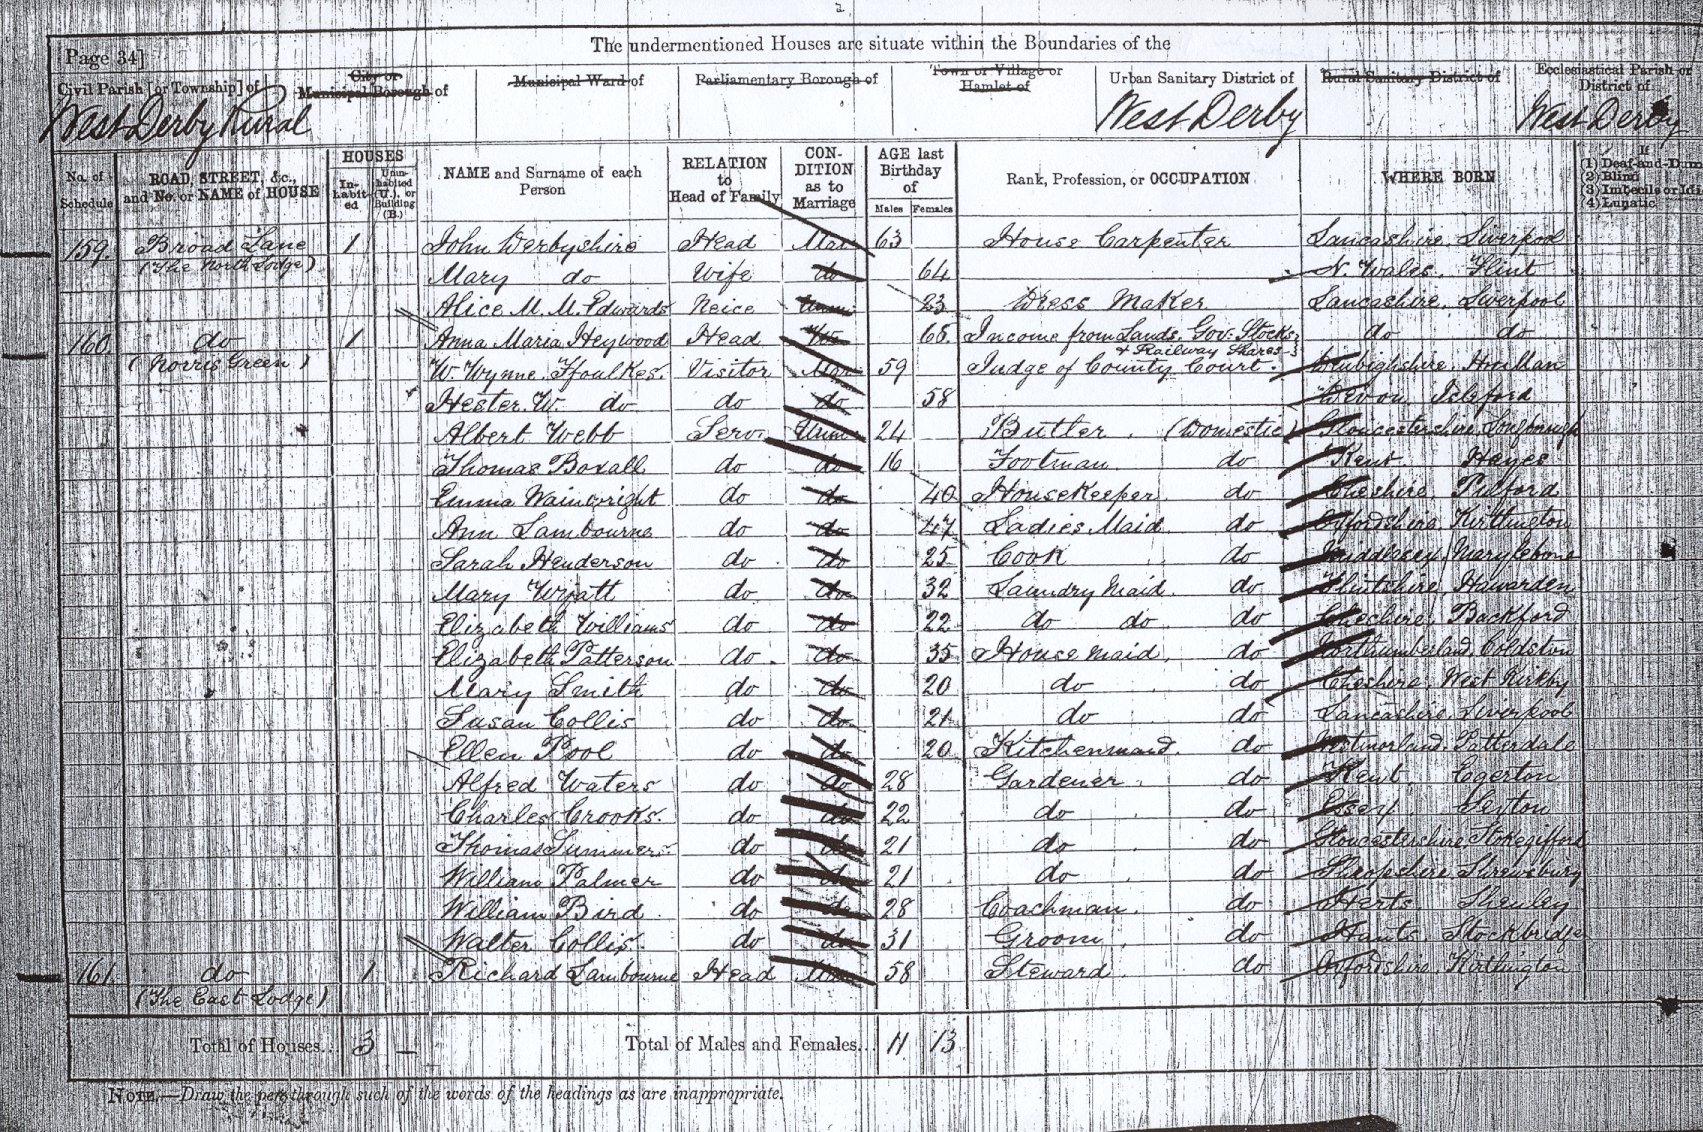 Page 34]
The undermentioned Houses are situate within the Boundaries of the
Civil Parish [or Township] of
City or Municipal Borough of
Municipal Ward of
Parliamentary Borough of
Town or Village or Hamlet of
Urban Sanitary District of
Rural Sanitary District of
Ecclesiastical Parish or District of
West Derby Rural West Derby West Derby
No. of Schedule
ROAD, STREET, &c., and No. or NAME of HOUSE
HOUSES
In-habit-ed
Unin-habited (U.), or Building (B.)
NAME and Surname of each Person
RELATION to Head of Family
CON-DITION as to Marriage
AGE last Birthday of
Males Females
Rank, Profession, or OCCUPATION
WHERE BORN
If
(1) Deaf-and-Dum
(2) Blind
(3) Imbecile or Idi
(4) Lunatic
159. Broad Lane 1 John Derbyshire Head Mar 63 House Carpenter Lancashire. Liverpool
(The North Lodge)
Mary do Wife do 64 N. Wales. Flint
Alice M. M. Edwards Neice Unm 23 Dress Maker Lancashire. Liverpool
160. do 1 Anna Maria Heywood Head 68 Income from Lands, Gov: Stocks do do
& Railway Shares
(Norris Green) W Wynne. Ffoulkes. Visitor Mar 59 Judge of County Court. Denbighshire.
Hester. W. do do do 58 Devon.
Albert Webb Serv. Unm 24 Butler. (Domestic) Gloucestershire, Longborough
Thomas Boxall do do 16 Footman do Kent. Hayes
Emma Wainwright do do 40 Housekeeper. do Cheshire. Pulford
Ann Lambourne do do 47 Ladies Maid do Oxfordshire, Kirtlington
Sarah Henderson do do 25 Cook do Middlesex, Marylebone
Mary Wyatt do do 32 Laundry Maid. do Flintshire, Hawarden
Elizabeth Williams do do 22 do do do Cheshire. Backford
Elizabeth Patterson do do 35 House Maid. do Northumberland,
Mary Smith do do 20 do do Cheshire. West Kirkby
Susan Collis do do 21 do do Lancashire. Liverpool
Ellen Pool do do 20 Kitchenmaid. do Westmorland. Patterdale
Alfred Waters do do 28 Gardener. do Kent Egerton
Charles Crooks. do do 22 do do Essex.
Thomas Summers. do do 21 do do Gloucestershire, Stokegifford
William Palmer do do 21 do do Shropshire Shrewsbury
William Bird do do 28 Coachman. do Herts Shenley
Walter Collis. do do 31 Groom, do Hants. Stockbridge
161. do 1 Richard Lambourne Head Mar 58 Steward. do Oxfordshire. Kirtlington
(The East Lodge)
Total of Houses.. 3 — Total of Males and Females... 11 13
NOTE.—Draw the pen through such of the words of the headings as are inappropriate.